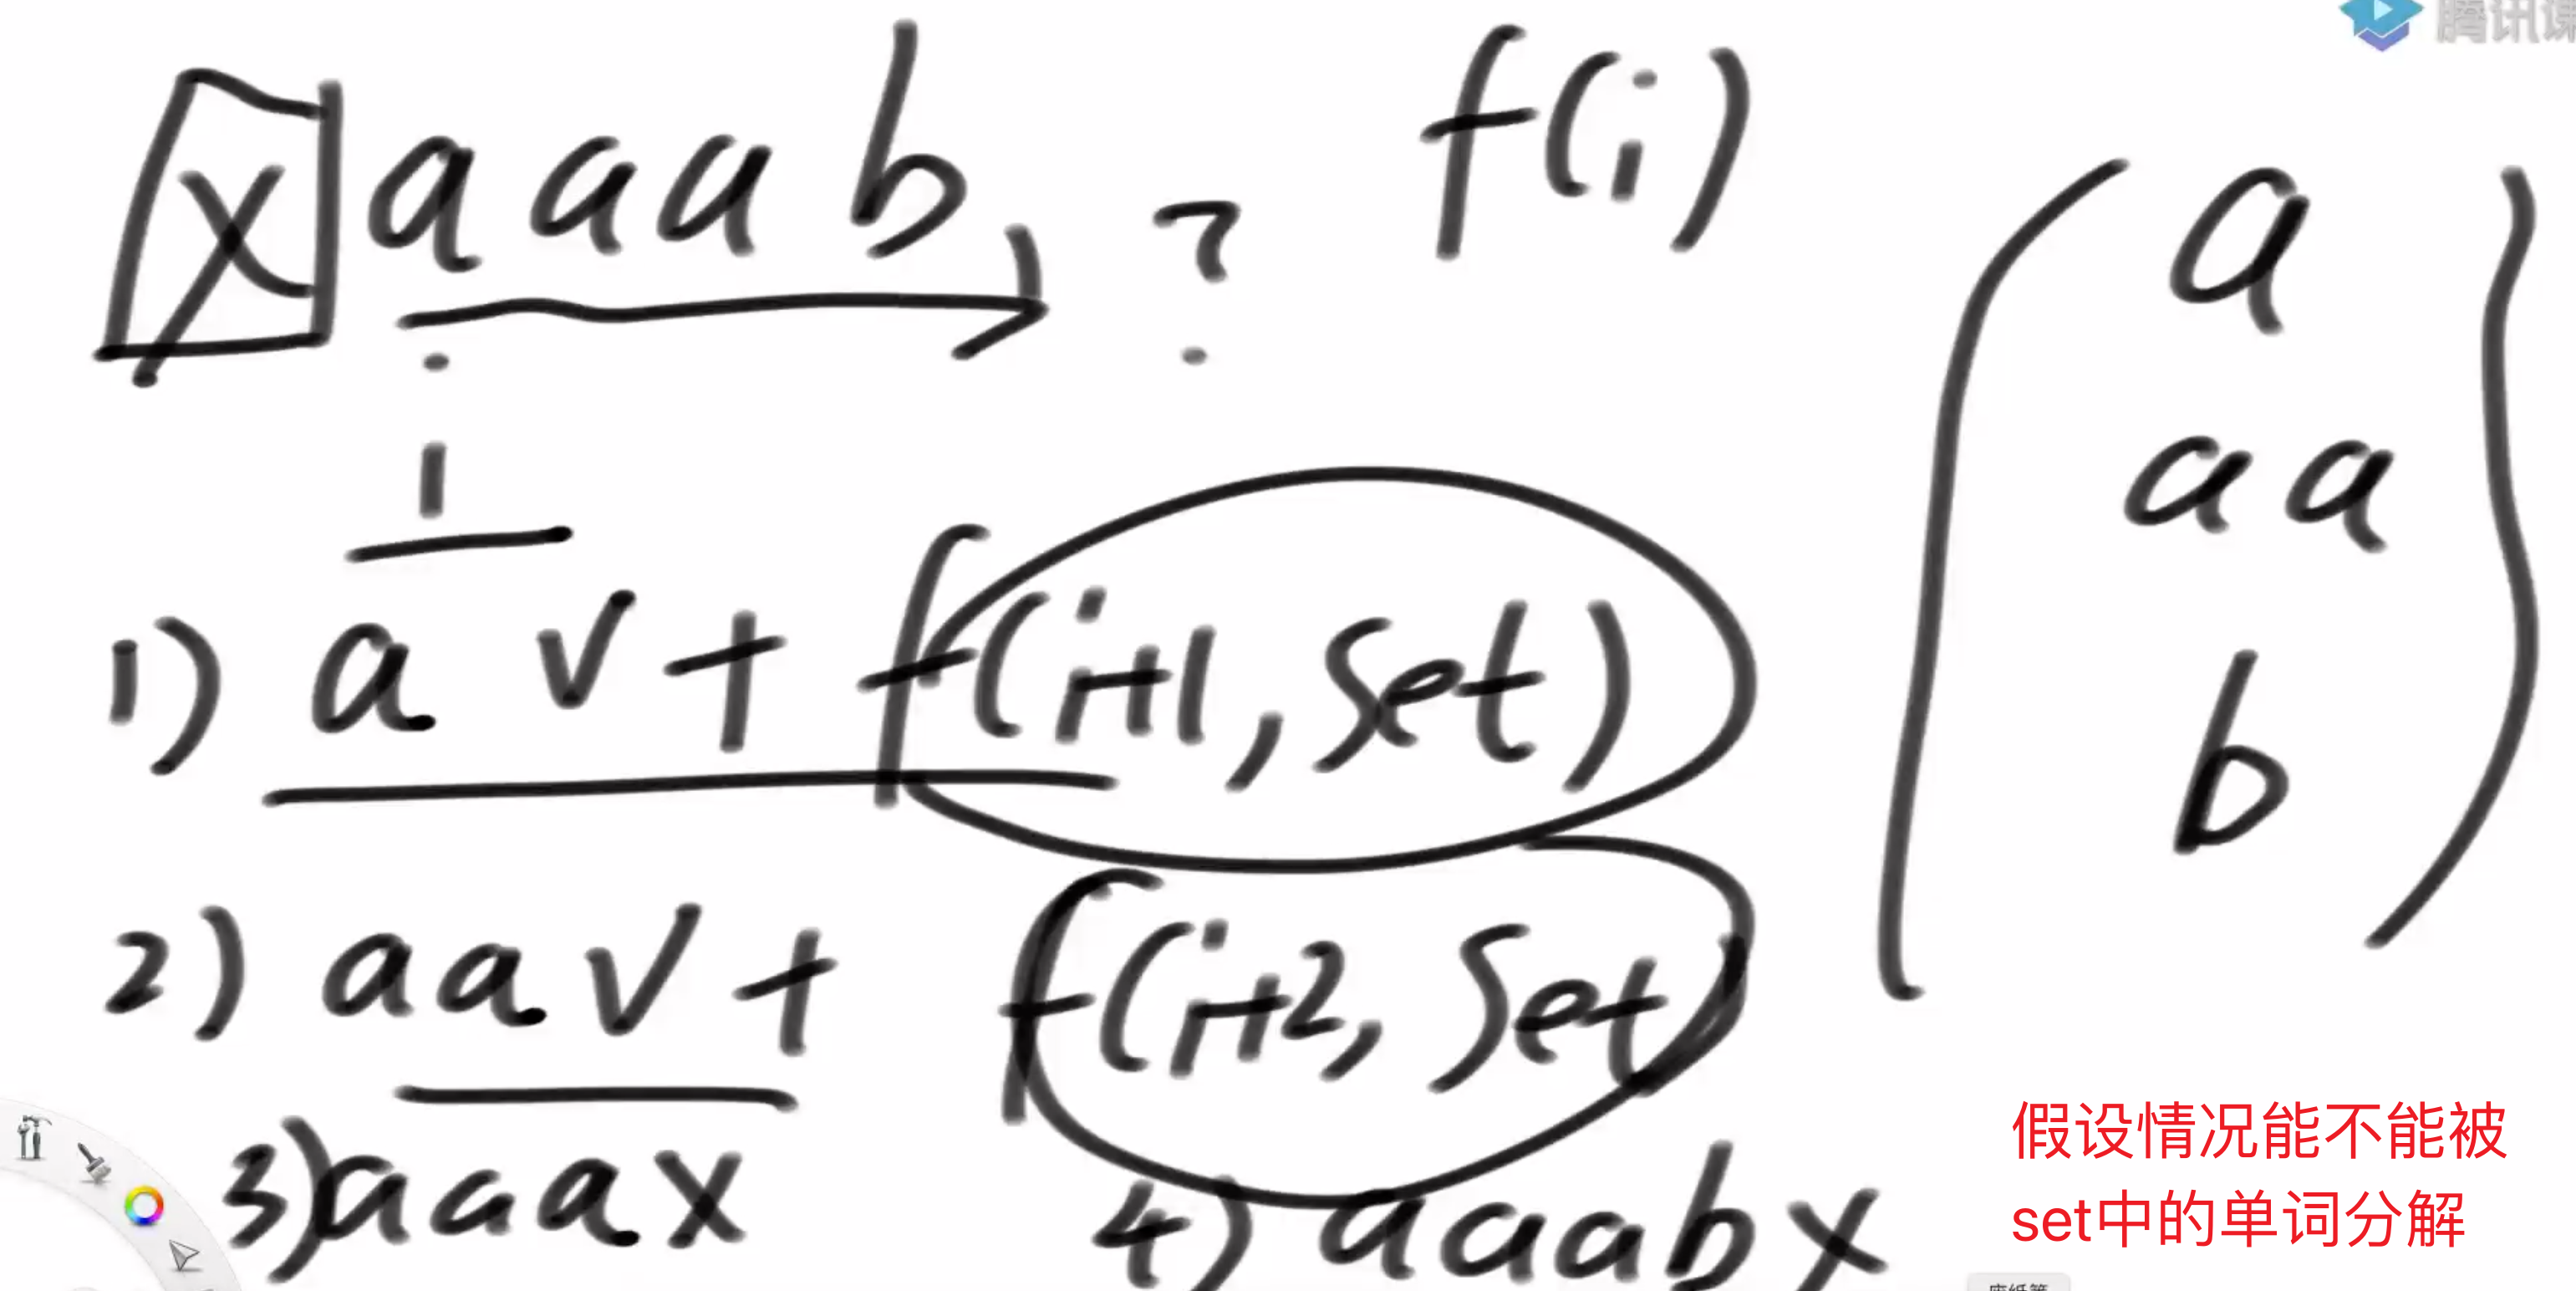 腾讯课
x a a a b ? f(i)
i
1) a √ + f(i+1, set)
2) aa √ + f(i+2, set)
3) aaa x 4) aaab x
a
aa
b
假设情况能不能被
set中的单词分解